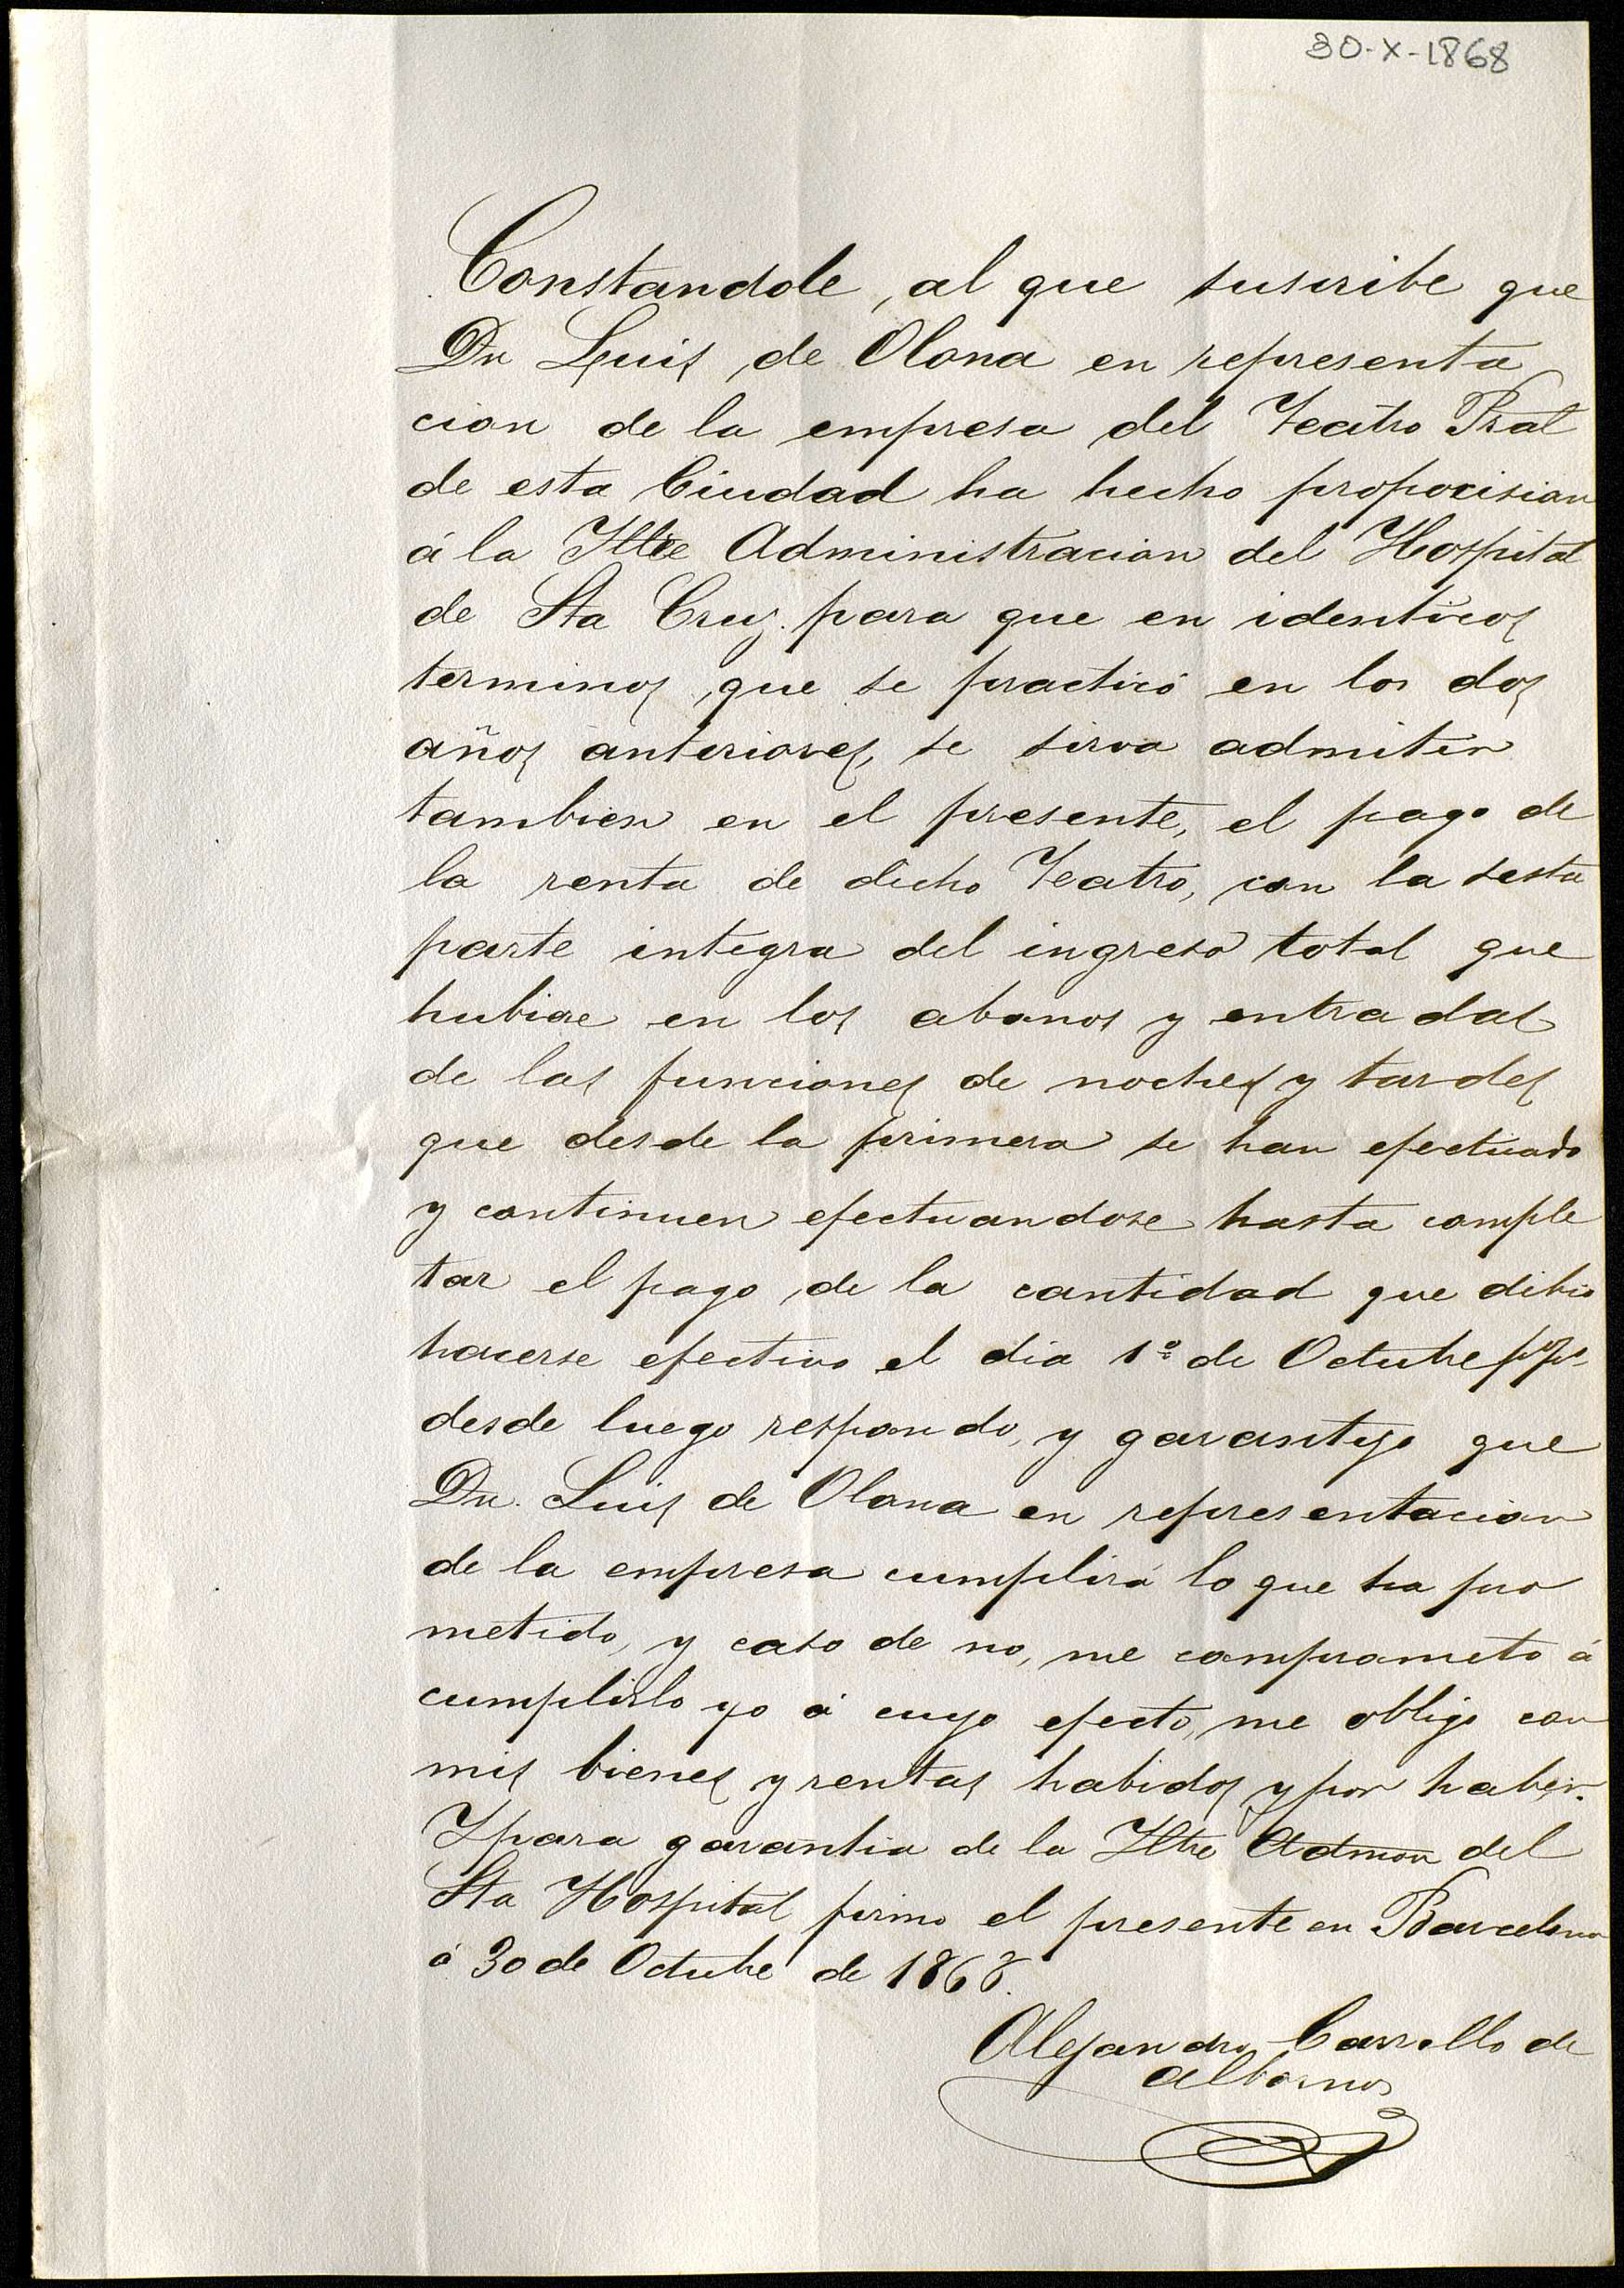 30-X-1868
Constandole, al que suscribe que
Dn Luis de Olona en representa
cion de la empresa del Teatro Pral
de esta Ciudad ha hecho proposision
á la Iltre Administracion del Hospital
de Sta Cruz. para que en identicos
terminos, que se practicó en los dos
años anteriores, se sirva admitir
tambien en el presente, el pago de
la renta de dicho Teatro, con la sesta
parte integra del ingreso total que
hubiere en los abonos y entradas
de las funciones de noches y tardes
que desde la primera se han efectuado
y continuen efectuandose hasta comple
tar el pago, de la cantidad que debió
hacerse efectivo el dia 1º de Octubre ppº
desde luego respondo, y garantizo que
Dn. Luis de Olona en representacion
de la empresa cumplirá lo que ha pro
metido, y caso de no, me comprometo á
cumplirlo yo á cuyo efecto, me obligo con
mis bienes y rentas habidos y por haber.
Y para garantia de la Iltre Admon del
Sto Hospital firmo el presente en Barcelona
á 30 de Octubre de 1868.
Alejandro Carrello de
Albornos